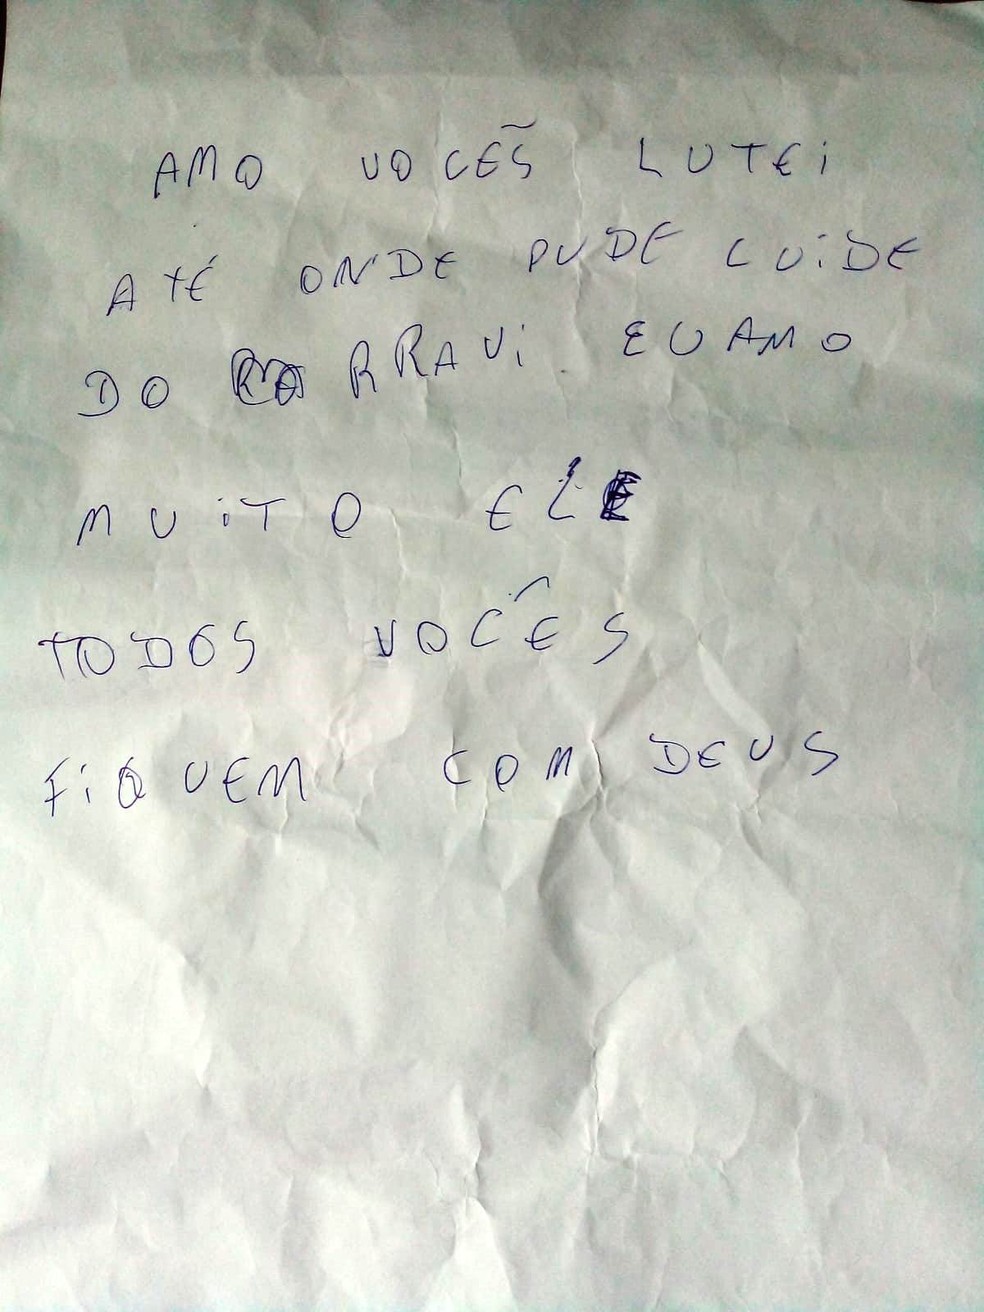 AMO VOCÊS LUTEI
ATÉ ONDE PUDE CUIDE
DO RRAVI. EU AMO
MUITO ELE
TODOS VOCÊS
FIQUEM COM DEUS